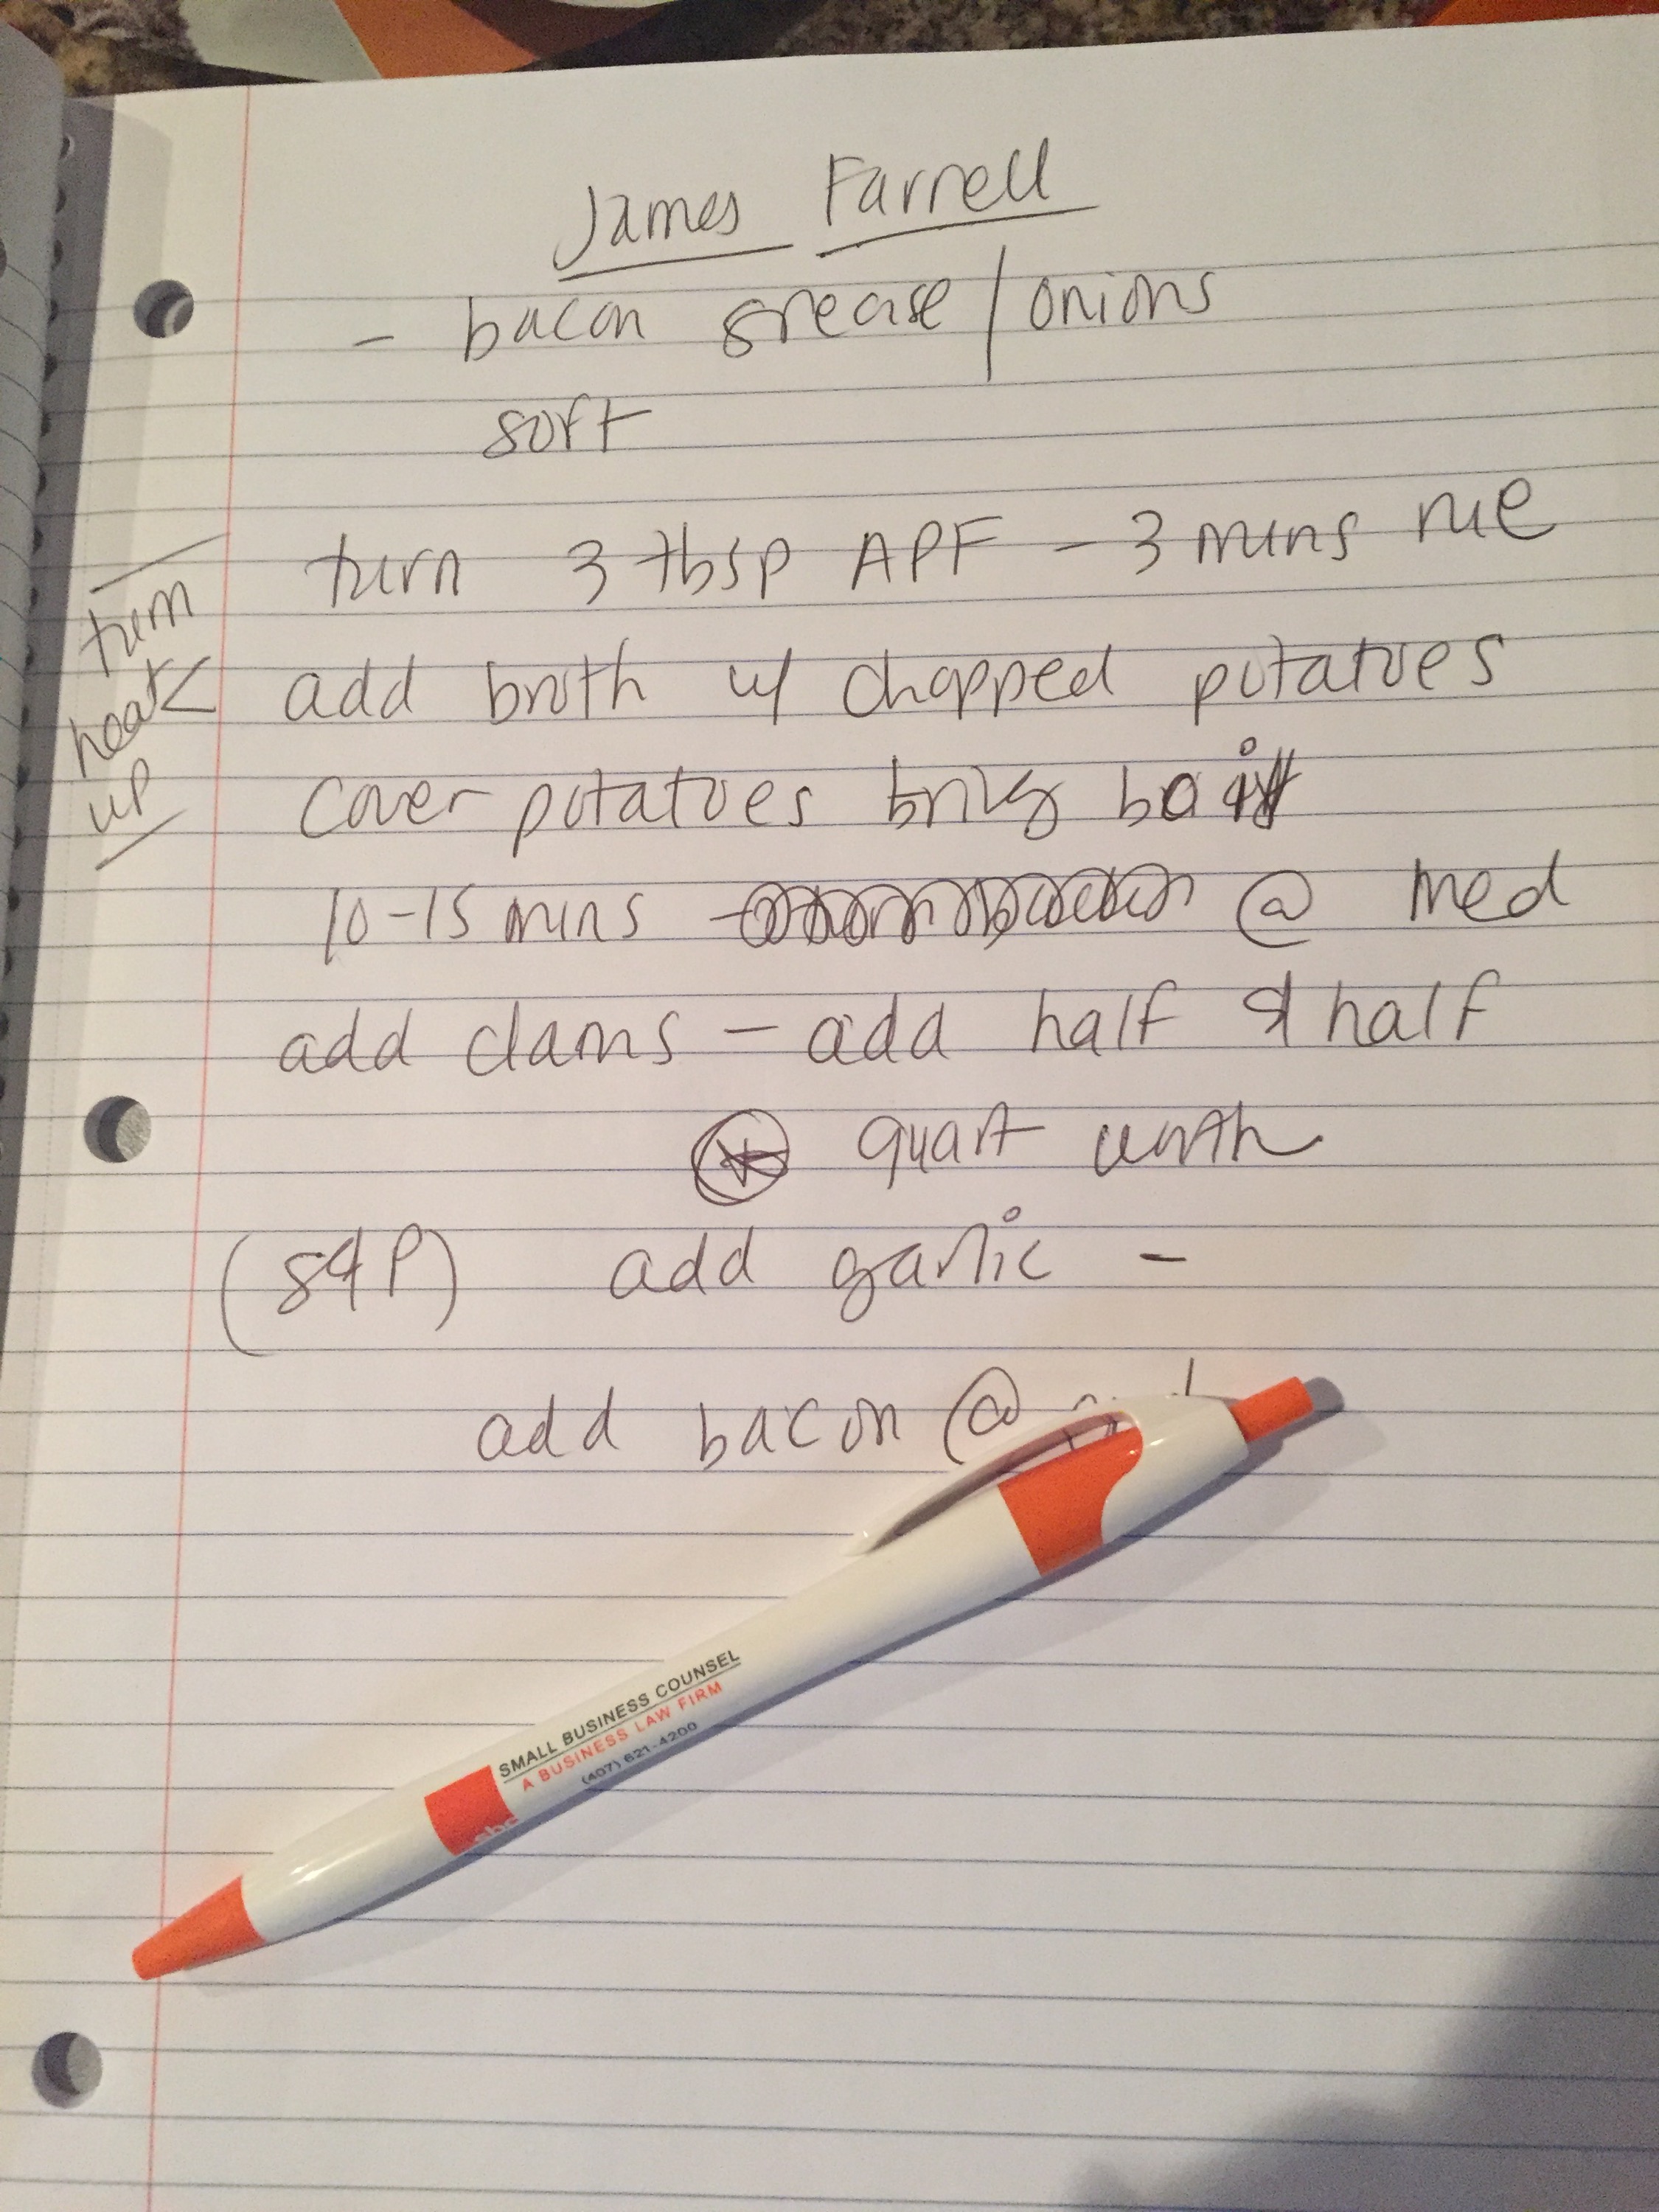 James Farrell
- bacon grease / onions
soft
turn 3 tbsp APF - 3 mins rue
turn
heat <
up
add broth w/ chopped potatoes
cover potatoes bring boil
10-15 mins @ med
add clams - add half & half
* quart worth
(S&P) add garlic -
add bacon @
SMALL BUSINESS COUNSEL
A BUSINESS LAW FIRM
(407) 621-4200
sbc